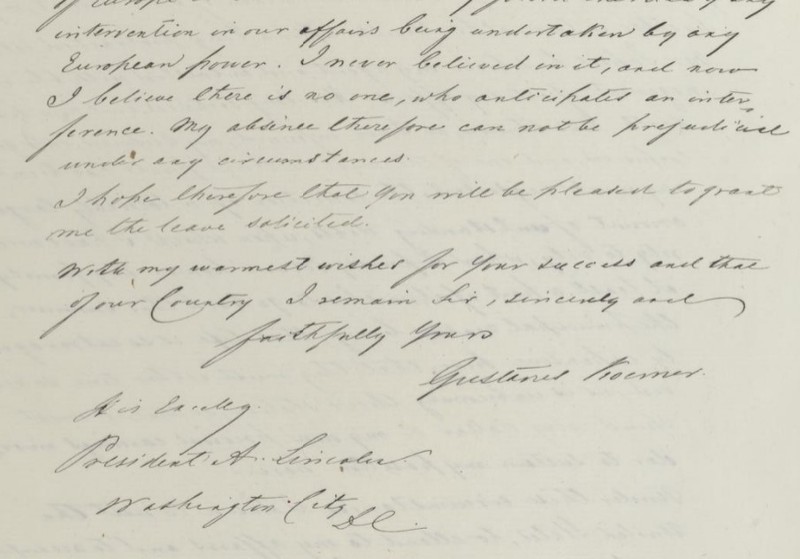 of Europe
intervention in our affairs being undertaken by any
European power. I never believed in it, and now
I believe there is no one, who anticipates an inter-
ference. My absince therefore can not be prejudicial
under any circumstances.
I hope therefore that you will be pleased to grant
me the leave solicited.
With my warmest wishes for your success and that
of our Country I remain Sir, sincerely and
faithfully Yours
Gustavus Koerner.
His Excllcy.
President A. Lincoln
Washington City
D.C.